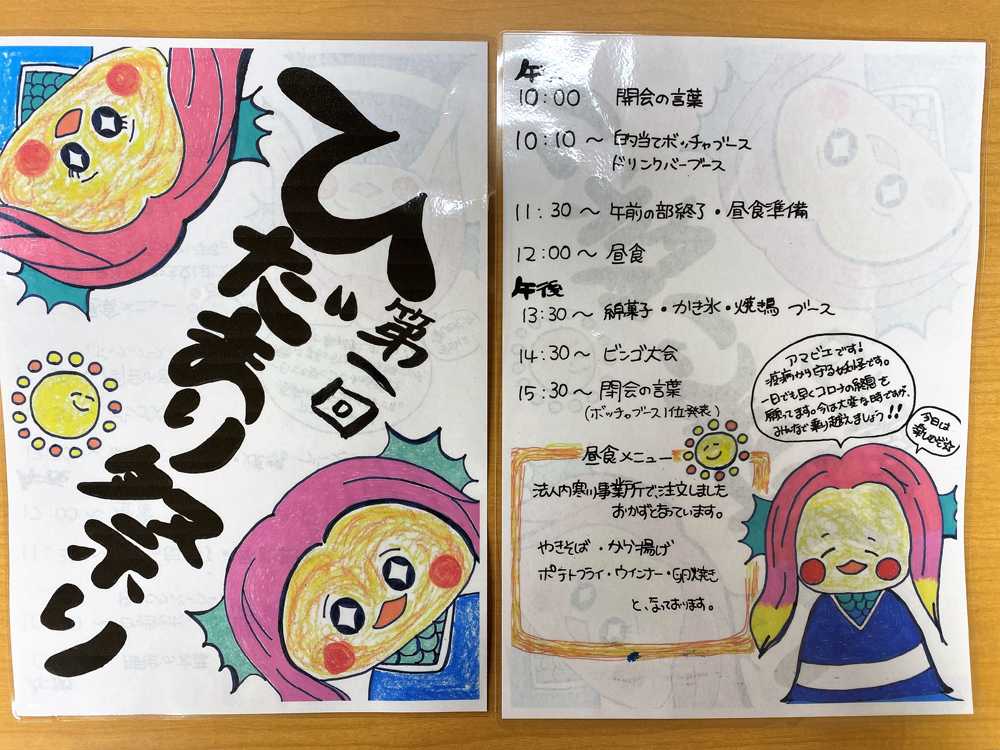 第一回
ひだまり祭り
午
10:00 開会の言葉
10:10～ 的当てボッチャブース
ドリンクバーブース
11:30～ 午前の部終了・昼食準備
12:00～ 昼食
午後
13:30～ 綿菓子・かき氷・焼き鳥 ブース
14:30～ ビンゴ大会
15:30～ 閉会の言葉
(ボッチャブース1位発表)
アマビエです!
疫病から守る妖怪です。
一日でも早くコロナの終息を
願ってます。今は大変な時ですが、
みんなで乗り越えましょう!!
今日は
楽しむぞ☆
昼食メニュー
法人内寒川事業所で、注文しました
おかずとなっています。
やきそば・から揚げ
ポテトフライ・ウインナー・卵焼き
と、なっております。